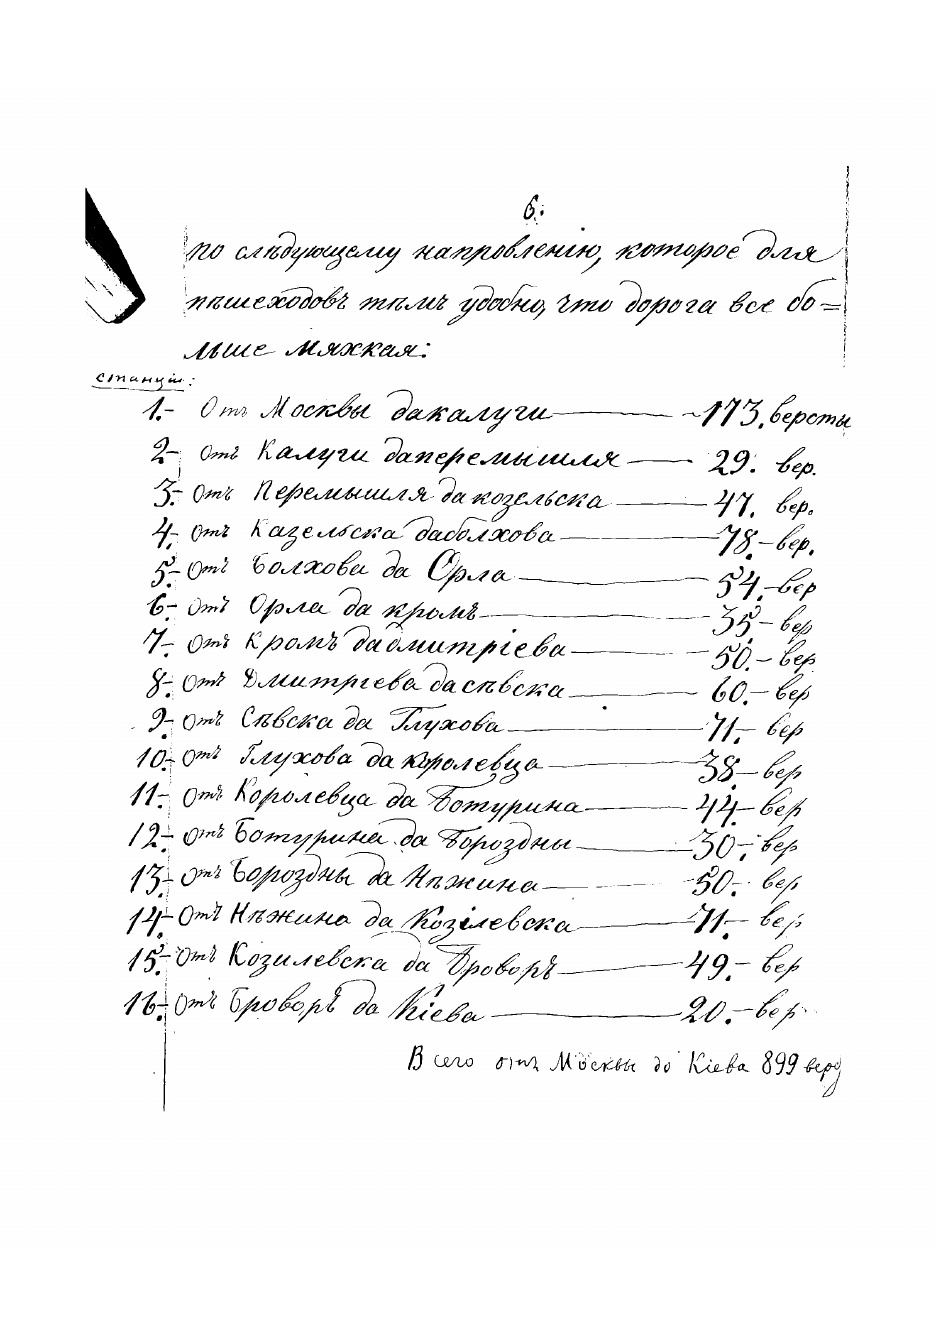 6.
по слѣдующему напровленію, которое для
пѣшеходовъ тѣмъ удобно, что дорога все бо=
льше мяхкая:
станціи:
1.- Отъ Москвы дакалуги — 173. версты
2.- отъ Калуги даперемышля — 29. вер.
3.- отъ Перемышля да козельска — 47. вер.
4.- отъ Казельска даболхова — 78.- вер.
5.- отъ Болхова да Орла — 54.- вер
6.- отъ Орла да кромъ — 35.- вер
7.- отъ Кромъ дадмитріева — 50.- вер
8.- отъ Дмитріева да сѣвска — 60.- вер
9.- отъ Сѣвска да Глухова — 71.- вер
10.- отъ Глухова да королевца — 38.- вер
11.- отъ Королевца да Ботурина — 44.- вер
12.- отъ Ботурина да Бороздны — 30.- вер
13.- отъ Бороздны да Нѣжина — 50.- вер
14.- отъ Нѣжина да Козілевска — 71.- вер
15.- отъ Козилевска да Броворъ — 49.- вер
16.- отъ Броворъ да Кіева — 20.- вер
Всего отъ Москвы до Кіева 899 верс